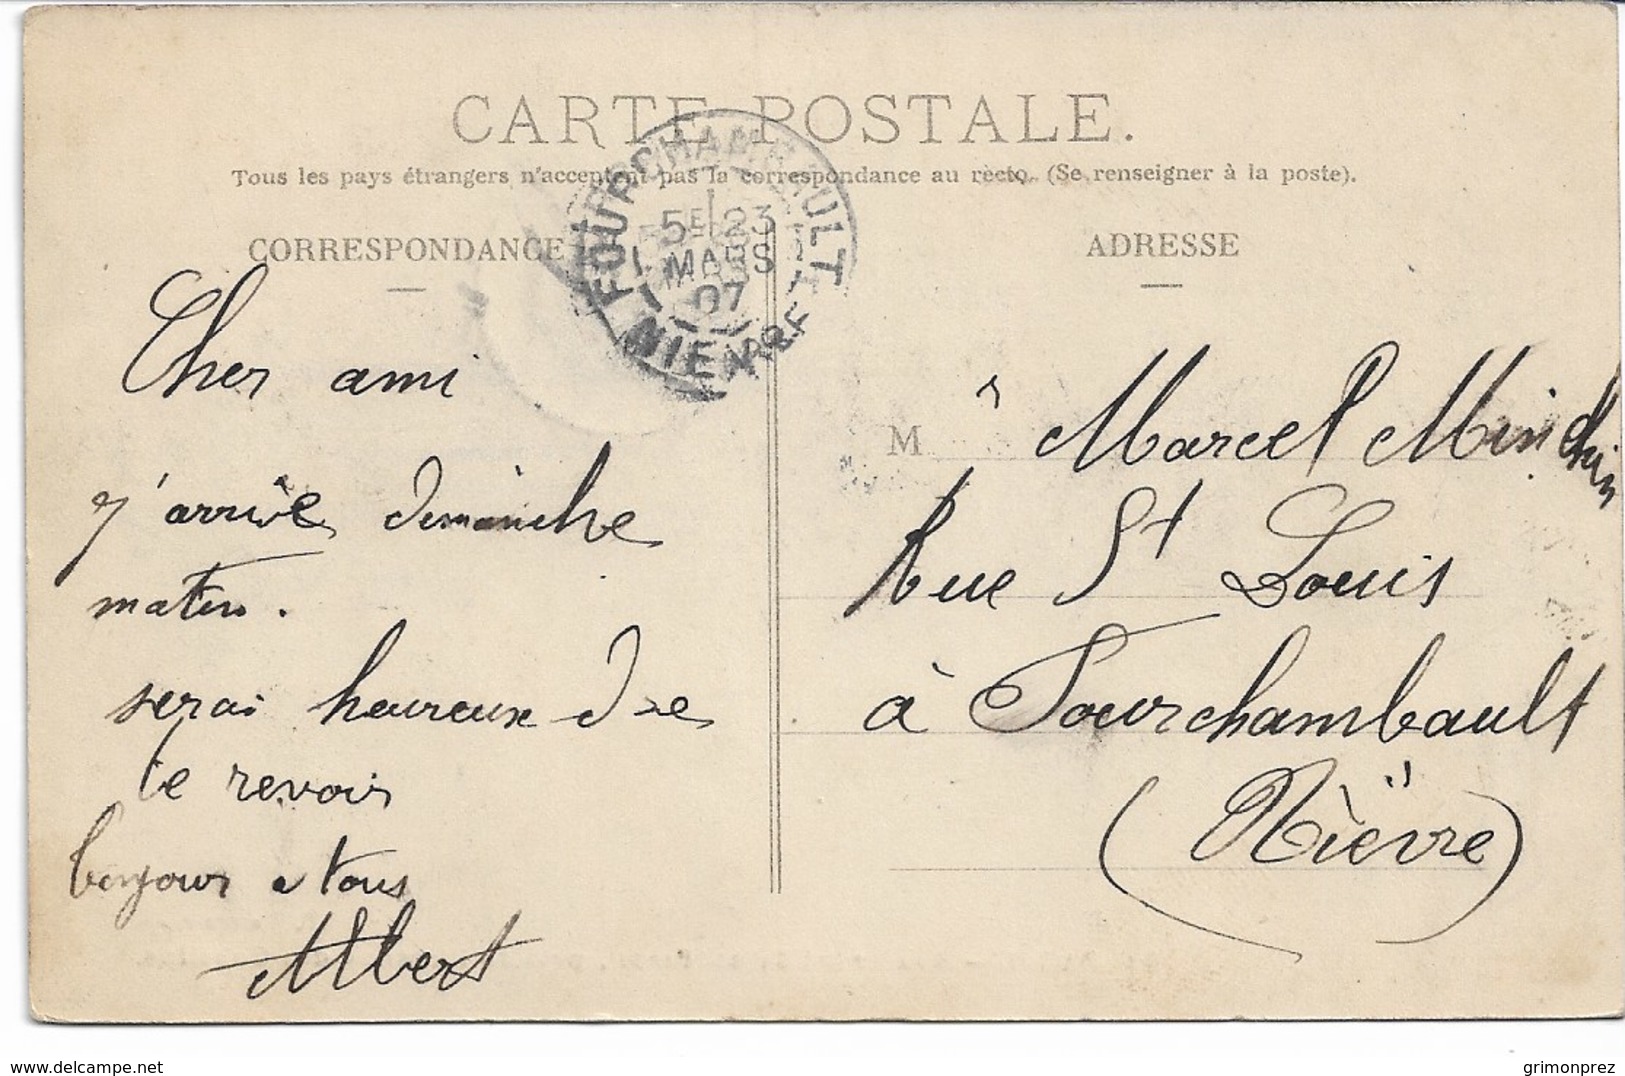 CARTE POSTALE.
Tous les pays étrangers n'acceptent pas la correspondance au recto. (Se renseigner à la poste).
CORRESPONDANCE
ADRESSE
FOURCHAMBAULT
5E 23
MARS
07
NIEVRE
Cher ami
j'arrive dimanche
matin.
serai heureux de
te revoir
bonjour a tous
Albert
M
à Marcel Minchin
Rue St Louis
à Fourchambault
(Nièvre)
delcampe.net
grimonprez